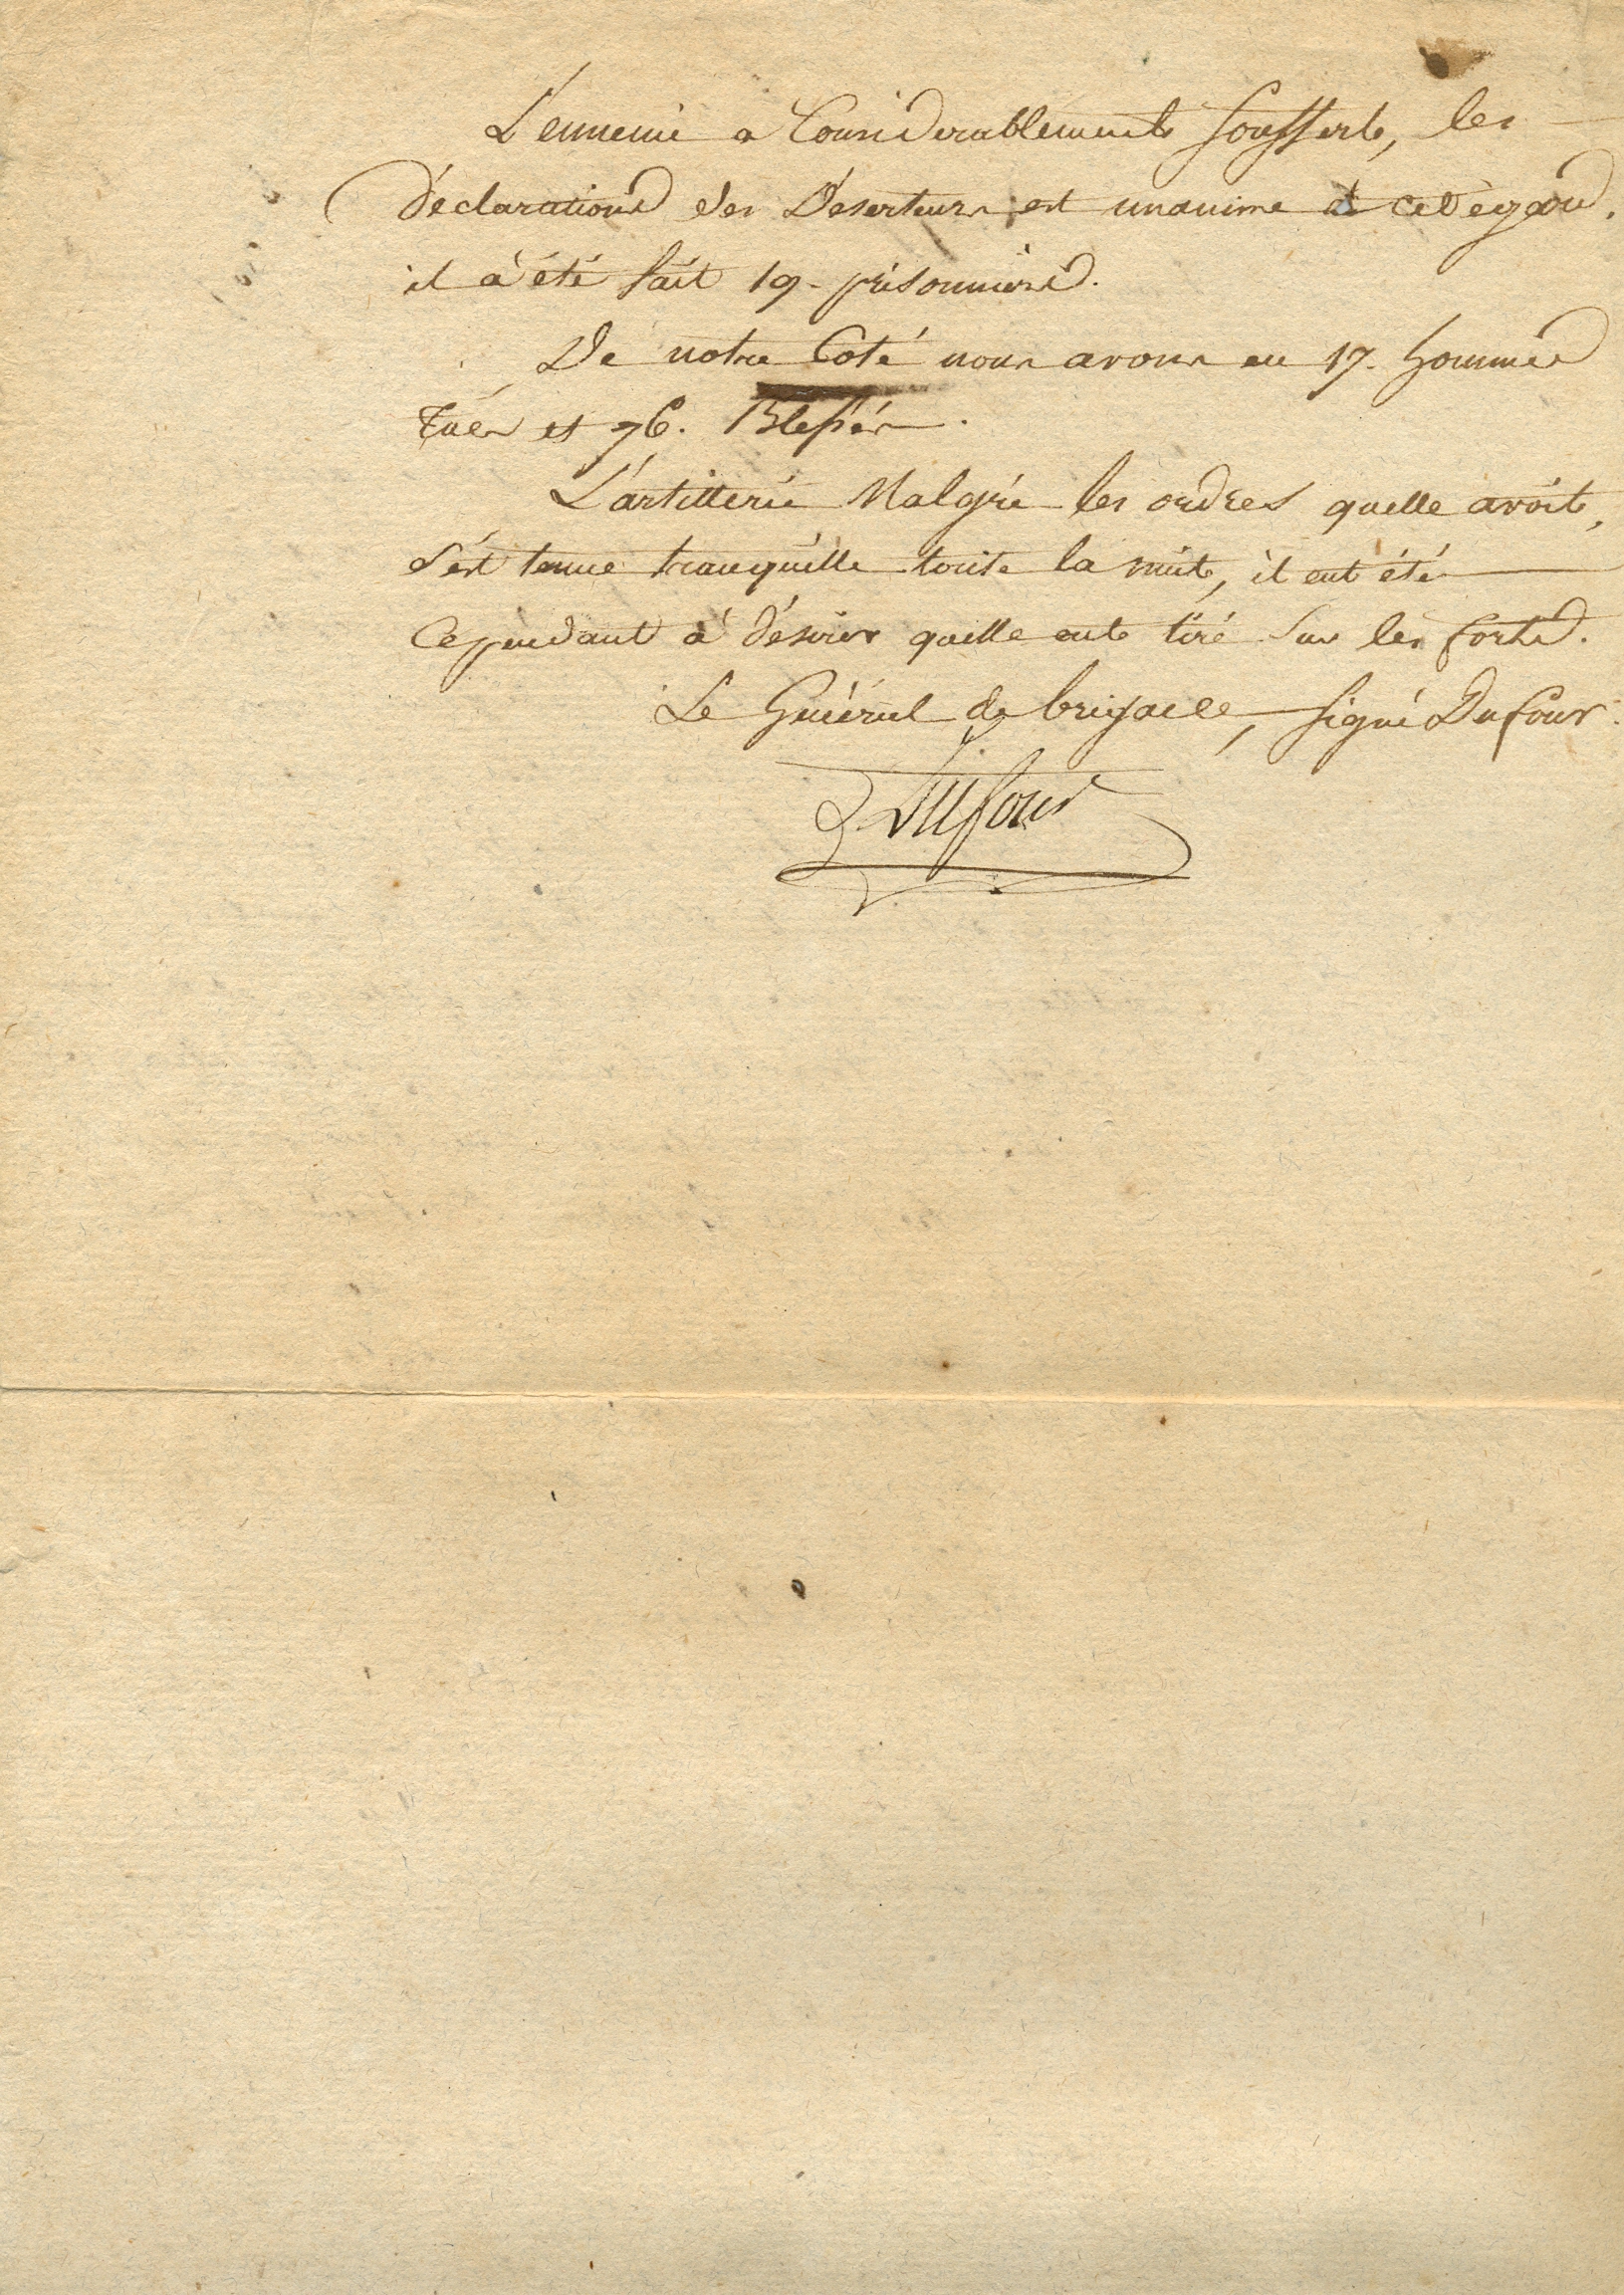 L'ennemie a Considerablement souffert, les
déclarations des Déserteurs est unanime à cet égard.
il à été fait 19. prisonniers.
De notre Coté nous avons eu 17. hommes
tués et 76. Blessés.
L'artillerie Malgré les ordres quelle avoit,
s'est tenue tranquille toute la nuit, il eut été
Cependant à désirer quelle eut tiré sur les forts.
Le Général de brigade, signé Dufour.
Dufour